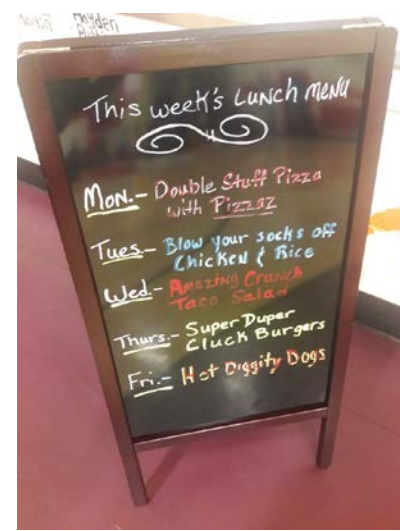 Hayden
This week's Lunch menu
Mon.- Double Stuff Pizza
with Pizzaz
Tues- Blow your socks off
Chicken & Rice
Wed.- Amazing Crunch
Taco Salad
Thurs.- Super Duper
Cluck Burgers
Fri.- Hot Diggity Dogs